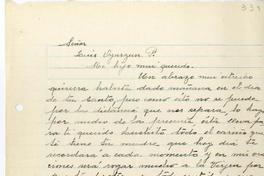 Señor
Luis Oyarzun P.
Mi hijo mui querido.
Un abrazo mui estrecho
quisiera haberte dado mañana en el dia
de tu Santo, pero como esto no se puede
por la distancia que nos separa, lo hago
por medio de la presente, esta lleva pa
ra ti querido Luchito todo el cariño que
te tiene tu madre, que hoy dia te
recordara a cada momento y en mis ora
ciones será rogar mucho a la Virgen por